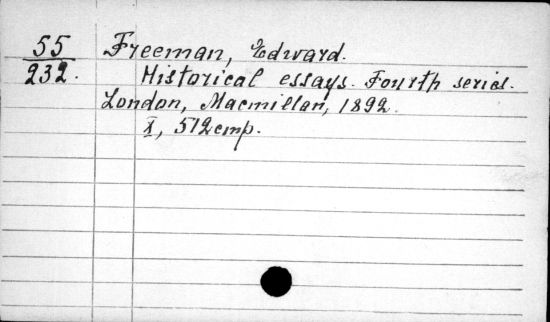 55 Freeman, Edward.
232. Historical essays. Fourth series.
London, Macmillan, 1892.
X, 512 стр.